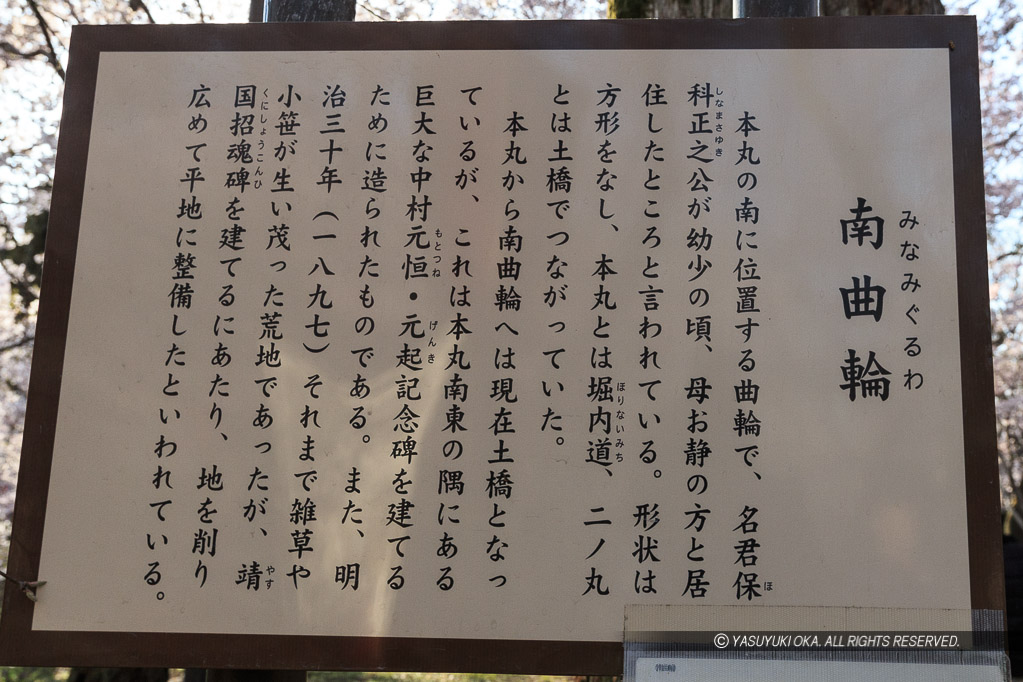 南曲輪
みなみぐるわ
本丸の南に位置する曲輪で、名君保
ほ
科正之公が幼少の頃、母お静の方と居
しなまさゆき
住したところと言われている。形状は
方形をなし、本丸とは堀内道、二ノ丸
ほりないみち
とは土橋でつながっていた。
本丸から南曲輪へは現在土橋となっ
ているが、これは本丸南東の隅にある
巨大な中村元恒・元起記念碑を建てる
もとつね げんき
ために造られたものである。また、明
治三十年（一八九七）それまで雑草や
小笹が生い茂った荒地であったが、靖
やす
国招魂碑を建てるにあたり、地を削り
くにしょうこんひ
広めて平地に整備したといわれている。
© YASUYUKI OKA. ALL RIGHTS RESERVED.